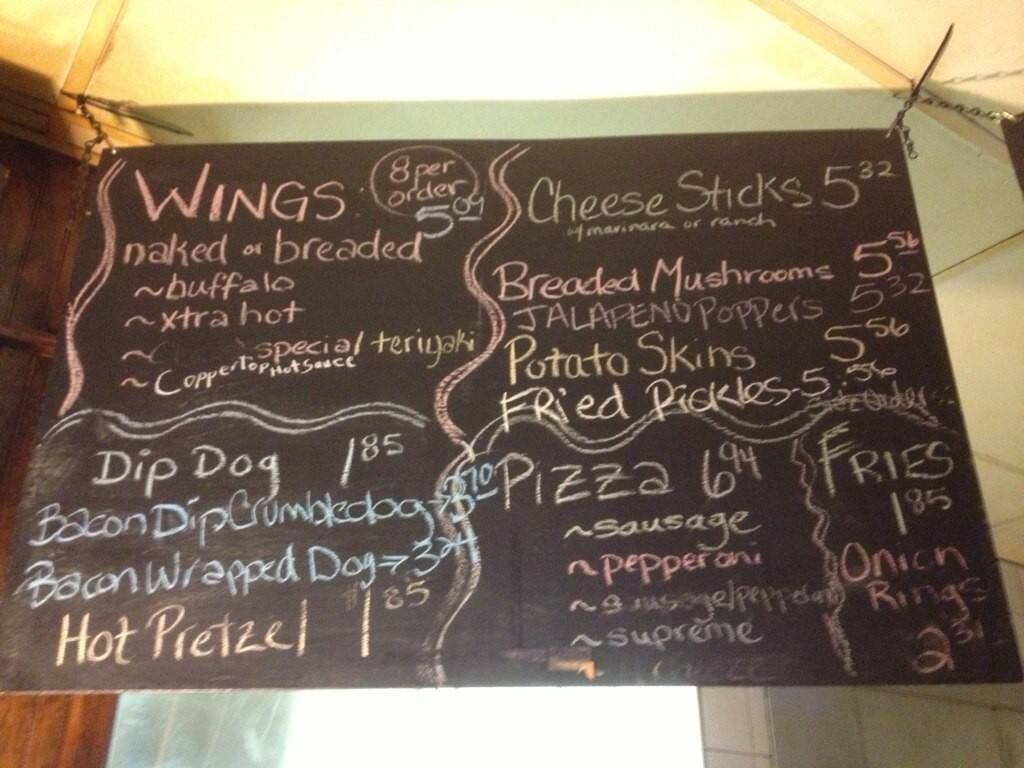 WINGS
8 per
order
5 04
naked or breaded
~buffalo
~xtra hot
~ special teriyaki
~CopperTop Hot Sauce
Cheese Sticks 5 32
w/marinara or ranch
Breaded Mushrooms 5 56
JALAPENO Poppers 5 32
Potato Skins 5 56
FRied Pickles 5 56
Dip Dog 1 85
Bacon Dip Crumble dog → 3 70
Bacon Wrapped Dog → 3 24
Hot Pretzel 1 85
Pizza 6 94
~sausage
~pepperoni
~sausage/pepperoni
~supreme
FRIES
1 85
Onion
Rings
2 31